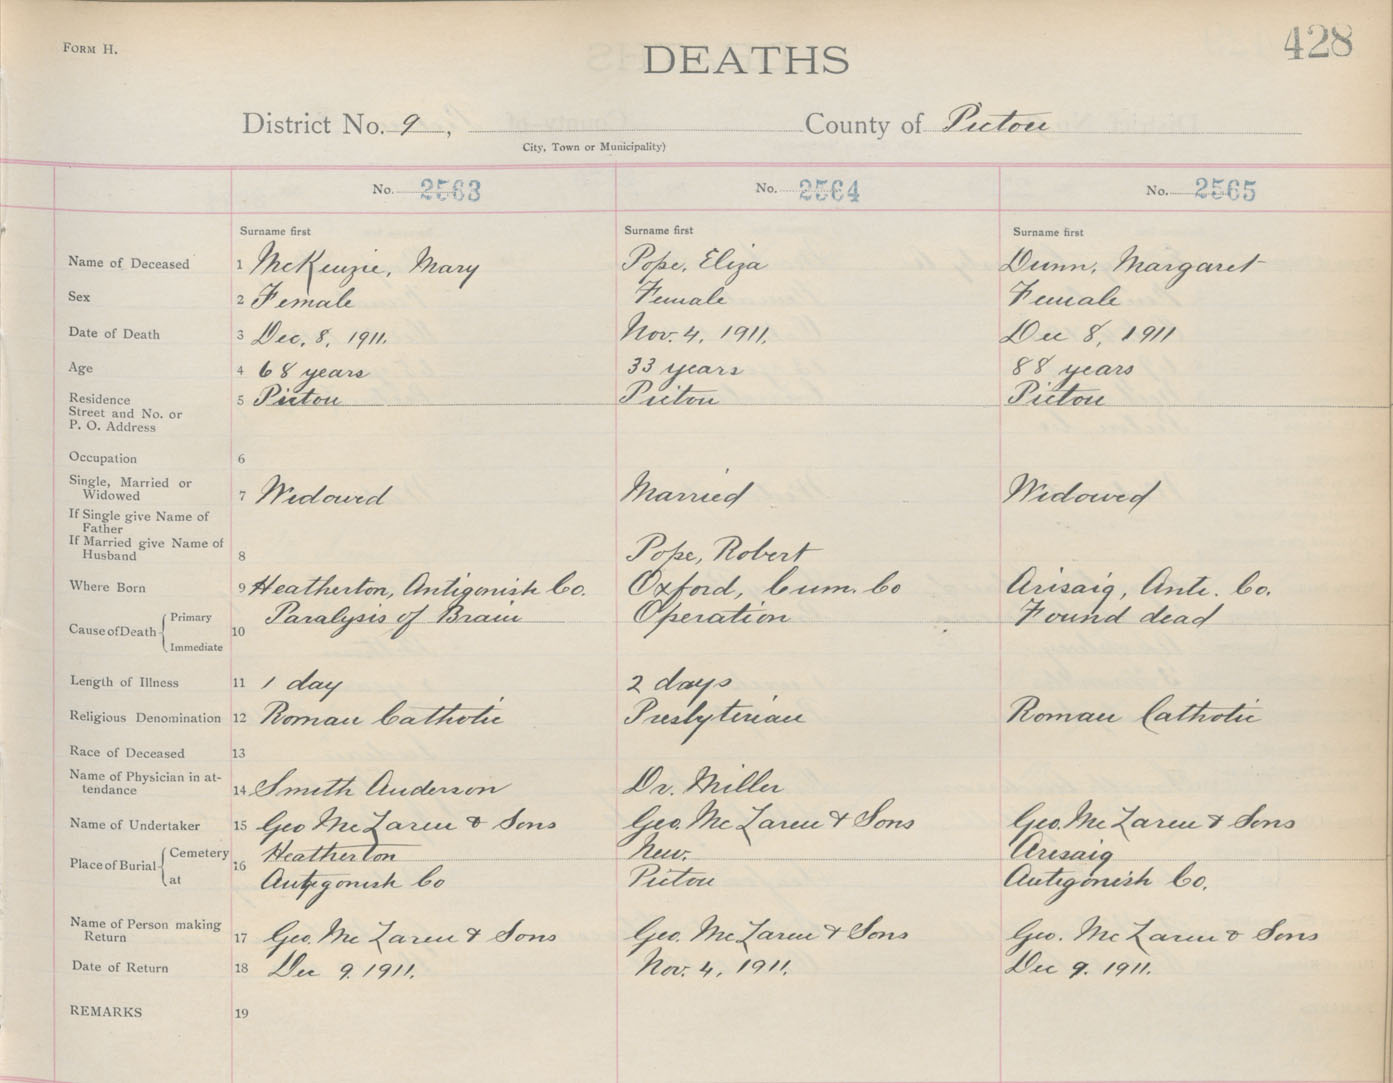 FORM H.
428
DEATHS
District No. 9, County of Pictou
City, Town or Municipality)
No. 2563 No. 2564 No. 2565
Surname first Surname first Surname first
Name of Deceased 1 McKenzie, Mary Pope, Eliza Dunn, Margaret
Sex 2 Female Female Female
Date of Death 3 Dec. 8, 1911. Nov. 4, 1911. Dec 8, 1911
Age 4 68 years 33 years 88 years
Residence 5 Pictou Pictou Pictou
Street and No. or
P. O. Address
Occupation 6
Single, Married or
Widowed 7 Widowed Married Widowed
If Single give Name of
Father
If Married give Name of
Husband 8 Pope, Robert
Where Born 9 Heatherton, Antigonish Co. Oxford, Cum. Co Arisaig, Ant. Co.
Cause of Death Primary 10 Paralysis of Brain Operation Found dead
Immediate
Length of Illness 11 1 day 2 days
Religious Denomination 12 Roman Catholic Presbyterian Roman Catholic
Race of Deceased 13
Name of Physician in at-
tendance 14 Smith Anderson Dr. Miller
Name of Undertaker 15 Geo McLaren & Sons Geo. McLaren & Sons Geo. McLaren & Sons
Place of Burial Cemetery 16 Heatherton New. Arisaig
at Antigonish Co Pictou Antigonish Co.
Name of Person making
Return 17 Geo. McLaren & Sons Geo. McLaren & Sons Geo. McLaren & Sons
Date of Return 18 Dec 9. 1911. Nov. 4, 1911. Dec 9. 1911.
REMARKS 19